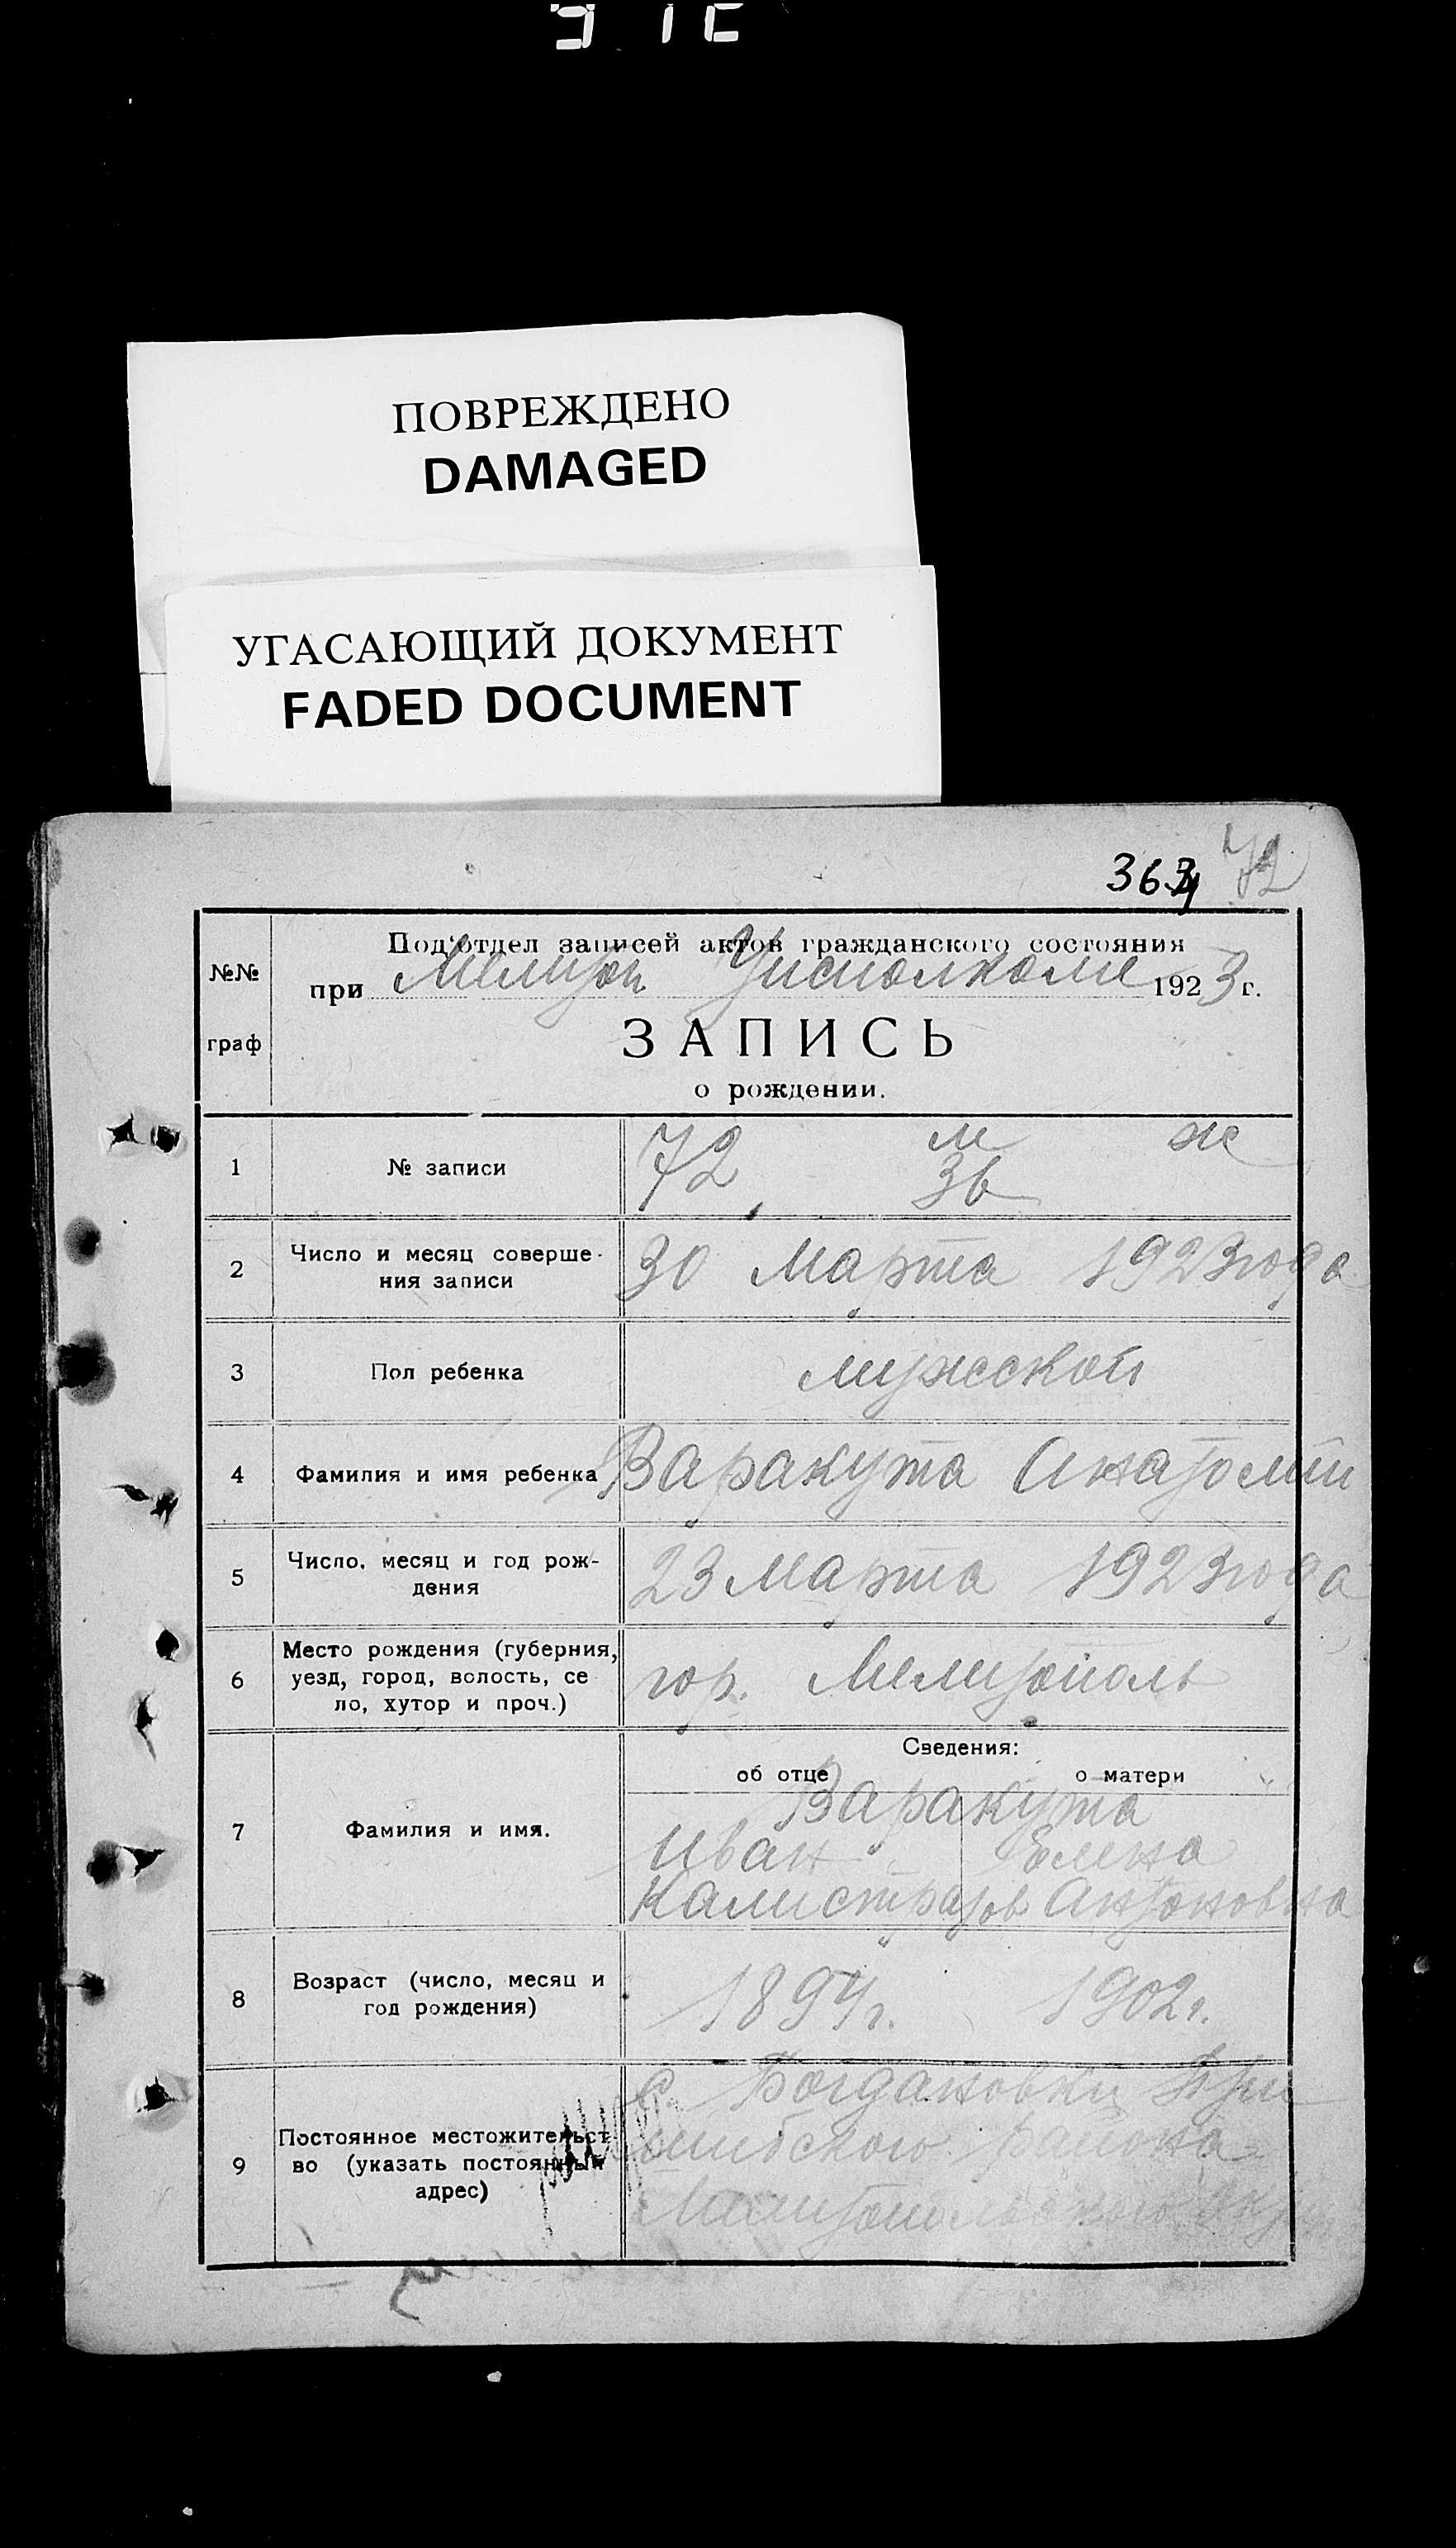 ПОВРЕЖДЕНО
DAMAGED
УГАСАЮЩИЙ ДОКУМЕНТ
FADED DOCUMENT
363 72
№№
граф
Под'отдел записей актов гражданского состояния
при Мелитоп. Уисполкоме 1923 г.
ЗАПИСЬ
о рождении.
1 № записи 72, м ж
36
2 Число и месяц соверше-
ния записи 30 марта 1923 года
3 Пол ребенка мужской
4 Фамилия и имя ребенка Варакута Анатолий
5 Число, месяц и год рож-
дения 23 марта 1923 года
6 Место рождения (губерния,
уезд, город, волость, се
ло, хутор и проч.) гор. Мелитополь
Сведения:
об отце о матери
7 Фамилия и имя. Варакута
Иван Елена
Калистратов Антоновна
8 Возраст (число, месяц и
год рождения) 1894г. 1902г.
9 Постоянное местожительст-
во (указать постоянный
адрес)
с. Богдановки При
шибского района
Мелитопольского Окр